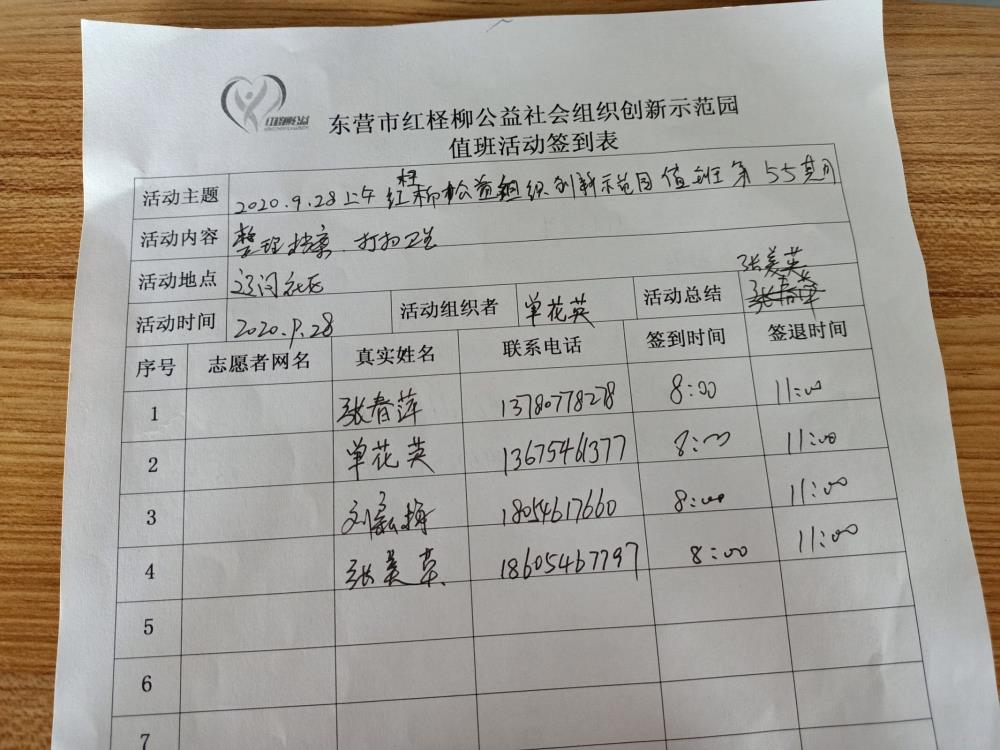 红柽柳公益
东营市红柽柳公益社会组织创新示范园
值班活动签到表
活动主题 2020.9.28上午红柽柳公益组织创新示范园值班第55期
活动内容 整理档案、打扫卫生
活动地点 辽河社区
张美英
活动时间 2020.9.28 活动组织者 单花英 活动总结 张春萍
序号 志愿者网名 真实姓名 联系电话 签到时间 签退时间
1 张春萍 13780778278 8:00 11:00
2 单花英 13675461377 8:00 11:00
3 刘 梅 18054617660 8:00 11:00
4 张美英 18605467797 8:00 11:00
5
6
7